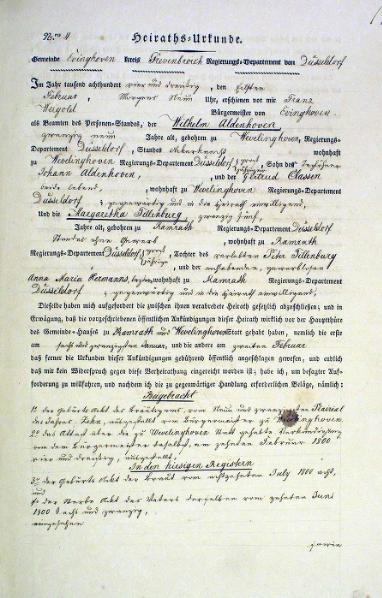 Nro. 11
Heiraths-Urkunde.
Gemeinde Evinghoven Kreis Grevenbroich Regierungs-Departement von Düsseldorf
Im Jahr tausend achthundert vier und dreyßig, den eilften
Februar, Morgens Neun Uhr, erschienen vor mir Franz
Weigold Bürgermeister von Evinghoven
als Beamten des Personen-Standes, der Wilhelm Aldenhoven
zwanzig neun Jahre alt, geboren zu Wevelinghoven, Regierungs-
Departement Düsseldorf, Standes Ackerknecht wohnhaft
zu Wevelinghoven Regierungs-Departement Düsseldorf, groß jähriger Sohn des
Johann Aldenhoven, und der Classen
beide lebend, wohnhaft zu Wevelinghoven Regierungs-Departement
Düsseldorf, gegenwärtig und in die Heirath einwilligend,
Und die Margaretha Tillenburg, zwanzig fünf,
Jahre alt, geboren zu Ramrath Regierungs-Departement Düsseldorf
Standes ohne Gewerb, wohnhaft zu Ramrath
Regierungs-Departement Düsseldorf, groß jährige Tochter des verlebten Peter Tillenburg
, und der
Anna Maria Hermanns, wohnhaft zu Ramrath Regierungs-Departement
Düsseldorf, gegenwärtig und in die Heirath einwilligend,
Dieselbe haben mich aufgefordert die zwischen ihnen verabredete Heirath gesetzlich abzuschließen; und in
Erwägung, daß die vorgeschriebenen öffentlichen Ankündigungen dieser Heirath wirklich vor der Hauptthüre
des Gemeinde-Hauses zu Ramrath und Wevelinghoven Statt gehabt haben, nemlich die erste
am sechs und zwanzigsten Januar, und die andere am zweiten Februar
das ferner die Urkunden dieser Ankündigungen gebührend öffentlich angeschlagen gewesen, und endlich
daß mir kein Widerspruch gegen diese Verheirathung eingereicht worden ist; habe ich, um besagter Auf-
forderung zu willfahren, und nachdem ich die zu gegenwärtiger Handlung erforderlichen Beläge, nämlich:
Beigebracht
1t der Geburts Akt des Bräutigams, vom Neun und zwanzigsten
des Jahres Zehn, ausgestellt vom Bürgermeister zu Wevelinghoven.
2t das Attest über die zu Wevelinghoven Statt gehabte Verkündigung
von dem Bürgermeister daselbst, am zehnten Februar 1800
vier und dreyßig, ausgestellt.
In den hiesigen Registern
3t der Geburts Akt der Braut vom achtzehnten July 1800 acht,
und
4t der Sterbe Akt des Vaters derselben vom zehnten Juni
1800 acht und zwanzig,
eingesehen
sowie